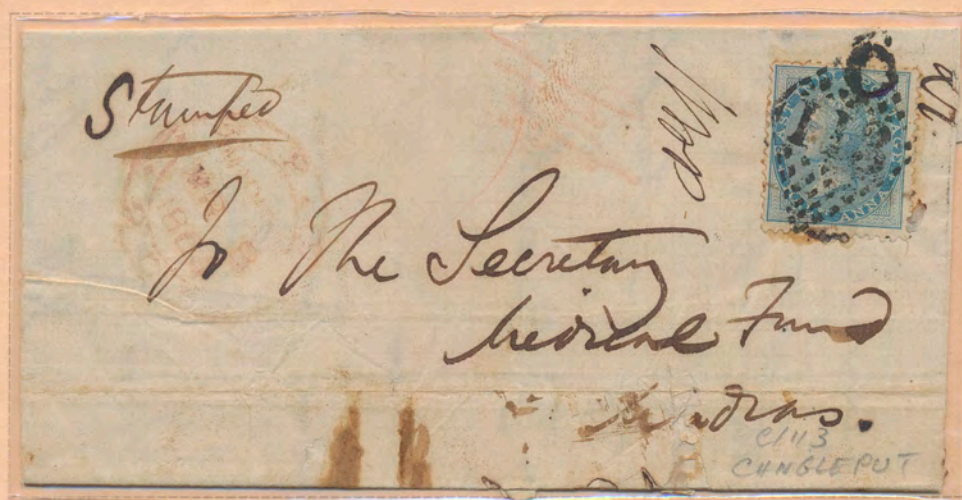 Stamped
To The Secretary
Medical Fund
Madras.
C/113
CHNGLEPUT
C
113
ANNA